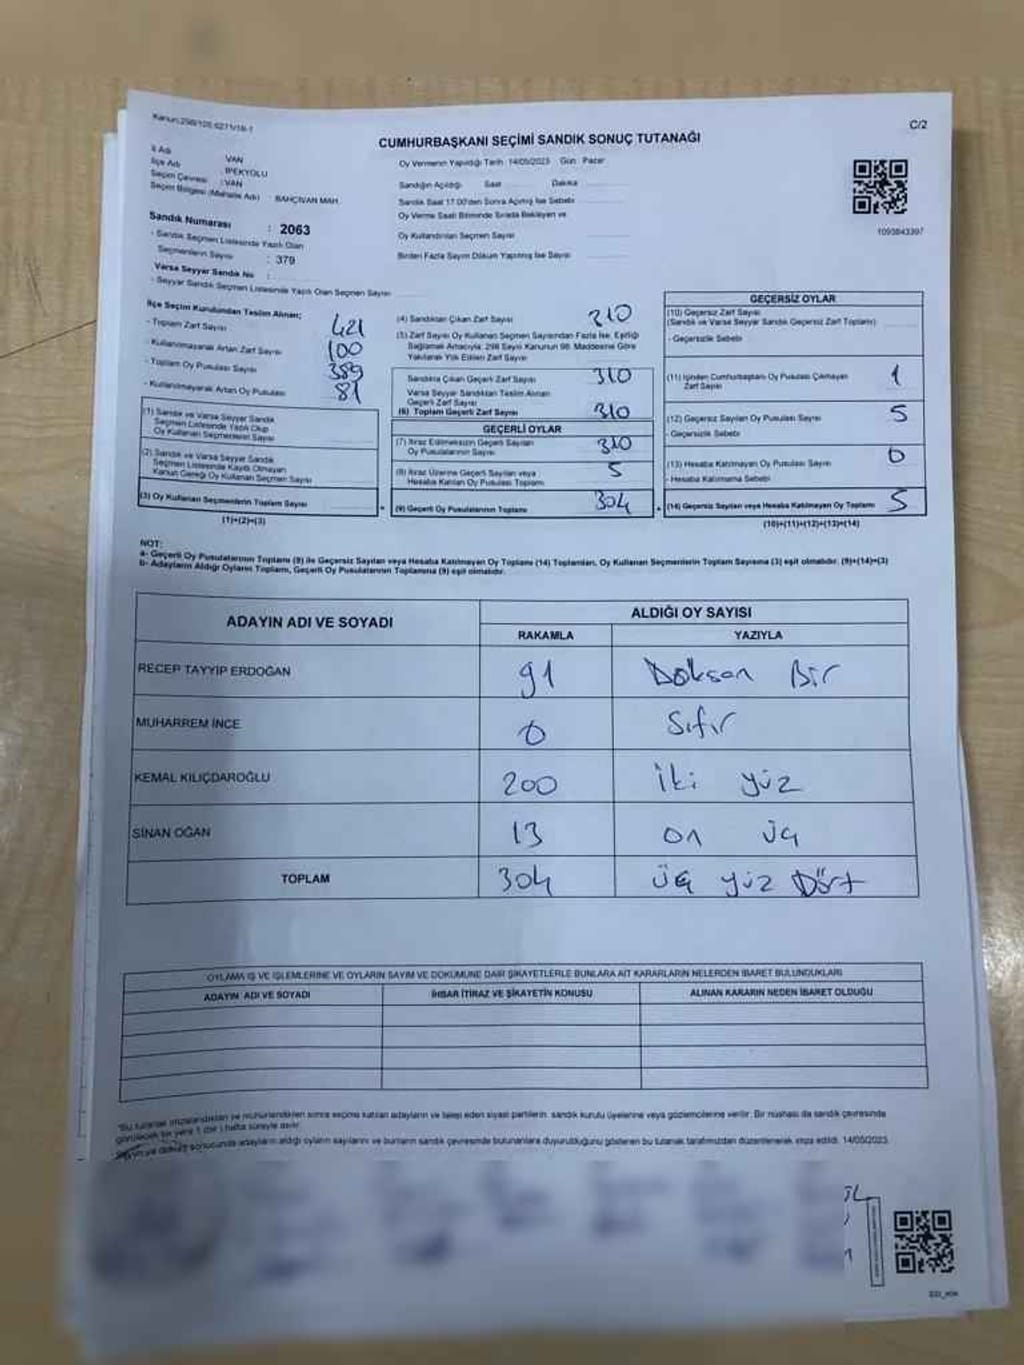 Kanun:298/105,6271/18-1
C/2
CUMHURBAŞKANI SEÇİMİ SANDIK SONUÇ TUTANAĞI
İl Adı VAN
İlçe Adı : İPEKYOLU
Seçim Çevresi : VAN
Seçim Bölgesi (Mahalle Adı) : BAHÇIVAN MAH.
Oy Vermenin Yapıldığı Tarih :14/05/2023 Gün : Pazar
Sandığın Açıldığı Saat Dakika
Sandık Saat 17.00'den Sonra Açılmış İse Sebebi
Oy Verme Saati Bitiminde Sırada Bekleyen ve
Oy Kullandırılan Seçmen Sayısı
Birden Fazla Sayım Döküm Yapılmış İse Sayısı
1093843397
Sandık Numarası : 2063
- Sandık Seçmen Listesinde Yazılı Olan
Seçmenlerin Sayısı : 379
Varsa Seyyar Sandık No :
- Seyyar Sandık Seçmen Listesinde Yazılı Olan Seçmen Sayısı
İlçe Seçim Kurulundan Teslim Alınan;
- Toplam Zarf Sayısı 421
- Kullanılmayarak Artan Zarf Sayısı 100
- Toplam Oy Pusulası Sayısı 389
- Kullanılmayarak Artan Oy Pusulası 81
(1) Sandık ve Varsa Seyyar Sandık
Seçmen Listesinde Yazılı Olup
Oy Kullanan Seçmenlerin Sayısı
(2) Sandık ve Varsa Seyyar Sandık
Seçmen Listesinde Kayıtlı Olmayan
Kanun Gereği Oy Kullanan Seçmen Sayısı
(3) Oy Kullanan Seçmenlerin Toplam Sayısı
(1)+(2)=(3)
(4) Sandıktan Çıkan Zarf Sayısı 310
(5) Zarf Sayısı Oy Kullanan Seçmen Sayısından Fazla İse, Eşitliği
Sağlamak Amacıyla, 298 Sayılı Kanunun 98. Maddesine Göre
Yakılarak Yok Edilen Zarf Sayısı
Sandıkta Çıkan Geçerli Zarf Sayısı 310
Varsa Seyyar Sandıktan Teslim Alınan
Geçerli Zarf Sayısı
(6) Toplam Geçerli Zarf Sayısı 310
GEÇERLİ OYLAR
(7) İtiraz Edilmeksizin Geçerli Sayılan
Oy Pusulalarının Sayısı 310
(8) İtiraz Üzerine Geçerli Sayılan veya
Hesaba Katılan Oy Pusulası Toplamı 5
(9) Geçerli Oy Pusulalarının Toplamı 304
GEÇERSİZ OYLAR
(10) Geçersiz Zarf Sayısı
(Sandık ve Varsa Seyyar Sandık Geçersiz Zarf Toplamı)
- Geçersizlik Sebebi
(11) İçinden Cumhurbaşkanı Oy Pusulası Çıkmayan
Zarf Sayısı 1
(12) Geçersiz Sayılan Oy Pusulası Sayısı 5
- Geçersizlik Sebebi
(13) Hesaba Katılmayan Oy Pusulası Sayısı 0
- Hesaba Katılmama Sebebi
(14) Geçersiz Sayılan veya Hesaba Katılmayan Oy Toplamı 5
(10)+(11)+(12)+(13)=(14)
NOT:
a- Geçerli Oy Pusulalarının Toplamı (9) ile Geçersiz Sayılan veya Hesaba Katılmayan Oy Toplamı (14) Toplamları, Oy Kullanan Seçmenlerin Toplam Sayısına (3) eşit olmalıdır. (9)+(14)=(3)
b- Adayların Aldığı Oyların Toplamı, Geçerli Oy Pusulalarının Toplamına (9) eşit olmalıdır.
ADAYIN ADI VE SOYADI
ALDIĞI OY SAYISI
RAKAMLA YAZIYLA
RECEP TAYYİP ERDOĞAN 91 Doksan Bir
MUHARREM İNCE 0 Sıfır
KEMAL KILIÇDAROĞLU 200 iki yüz
SİNAN OĞAN 13 on üç
TOPLAM 304 üç yüz Dört
OYLAMA İŞ VE İŞLEMLERİNE VE OYLARIN SAYIM VE DÖKÜMÜNE DAİR ŞİKAYETLERLE BUNLARA AİT KARARLARIN NELERDEN İBARET BULUNDUKLARI
ADAYIN ADI VE SOYADI İHBAR İTİRAZ VE ŞİKAYETİN KONUSU ALINAN KARARIN NEDEN İBARET OLDUĞU
"Bu tutanak imzalandıktan ve mühürlendikten sonra seçime katılan adayların ve talep eden siyasi partilerin, sandık kurulu üyelerine veya gözlemcilerine verilir. Bir nüshası da sandık çevresinde
görülecek bir yere 1 (bir) hafta süreyle asılır.
Sayım ve döküm sonucunda adayların aldığı oyların sayılarını ve bunların sandık çevresinde bulunanlara duyurulduğunu gösteren bu tutanak tarafımızdan düzenlenerek imza edildi. 14/05/2023